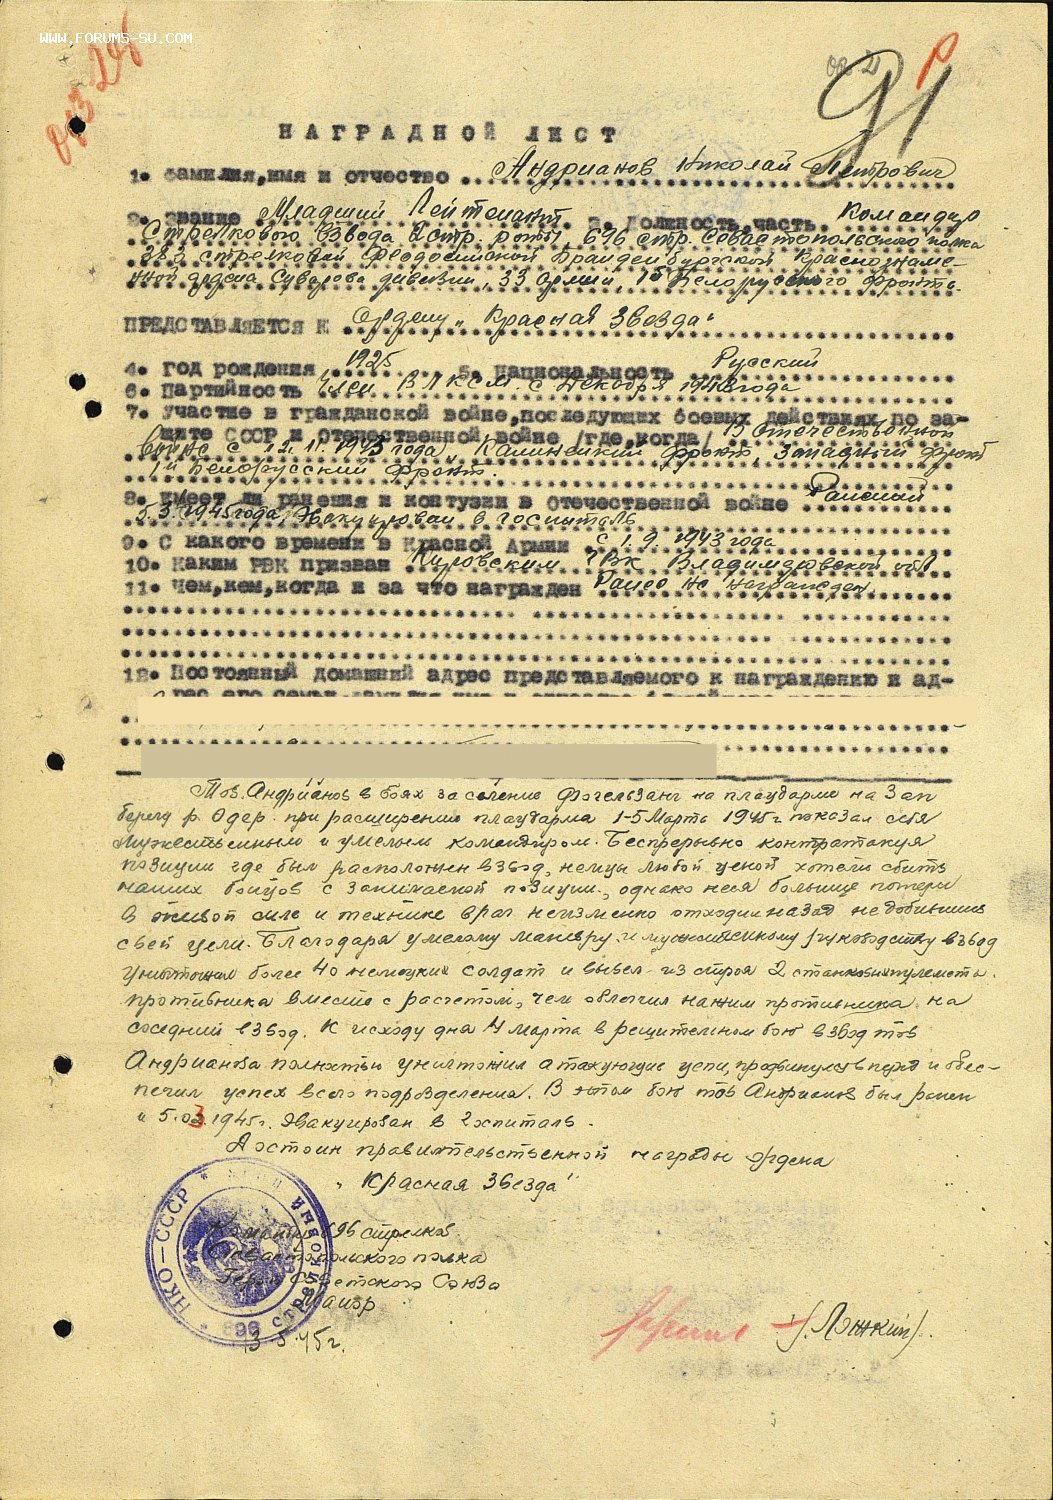 WWW.FORUMS-SU.COM
91
НАГРАДНОЙ ЛИСТ
1. Фамилия,имя и отчество Андрианов Николай Петрович
2. Звание Младший Лейтенант 3. Должность,часть Командир
Стрелкового взвода стр. роты, 696 стр. Севастопольского полка
383 стрелковой Феодосийской Бранденбургской Краснознаме-
ной ордена Суворова дивизии, 33 Армии, 1го Белорусского Фронта.
ПРЕДСТАВЛЯЕТСЯ К Ордену „Красная Звезда"
4. Год рождения 1925 5. Национальность Русский
6. Партийность Член ВЛКСМ с Декабря 1943 года
7. Участие в гражданской войне,последующих боевых действиях по за-
щите СССР и отечественной войне /где,когда/ В Отечественной
войне с 12.11.1943 года, Калининский фронт, Западный фронт
1й Белорусский Фронт.
8. Имеет ли ранения и контузии в отечественной войне Раненый
5.3.1945 года, Эвакуирован в госпиталь
9. С какого времени в Красной Армии с 1.9.1943 года
10. Каким РВК призван Кировским РВК Владимировской обл
11. Чем,кем,когда и за что награжден Ранее не награжден.
12. Постоянный домашний адрес представляемого к награждению и ад-
рес его семьи
Тов. Андрианов в боях за селение Фогельзанг на плацдарме на Зап
берегу р. Одер при расширении плацдарма 1-5 Марта 1945г показал себя
мужественным и умелым командиром. Беспрерывно контратакуя
позиции где был расположен взвод, немцы любой ценой хотели сбить
наших бойцов с занимаемой позиции, однако неся большие потери
в живой силе и технике враг неизменно отходил назад не добившись
своей цели. Благодаря умелому маневру и мужественному руководству взвод
уничтожил более 40 немецких солдат и вывел из строя 2 станковых пулемета
противника вместе с расчетом, чем облегчил нажим противника на
соседний взвод. К исходу дня 4 марта в решительном бою взвод тов
Андрианова полностью уничтожил атакующие цепи, продвинулся вперед и обес-
печил успех всего подразделения. В этом бою тов Андрианов был ранен
и 5.03.1945г. Эвакуирован в госпиталь.
Достоин правительственной награды ордена
„Красная Звезда"
НКО-СССР
696 СТРЕЛКОВЫЙ
Команд. 696 стрелков.
Севастопольского полка
Герой Советского Союза
Майор
/Лэжкий/.
3 5.45г.